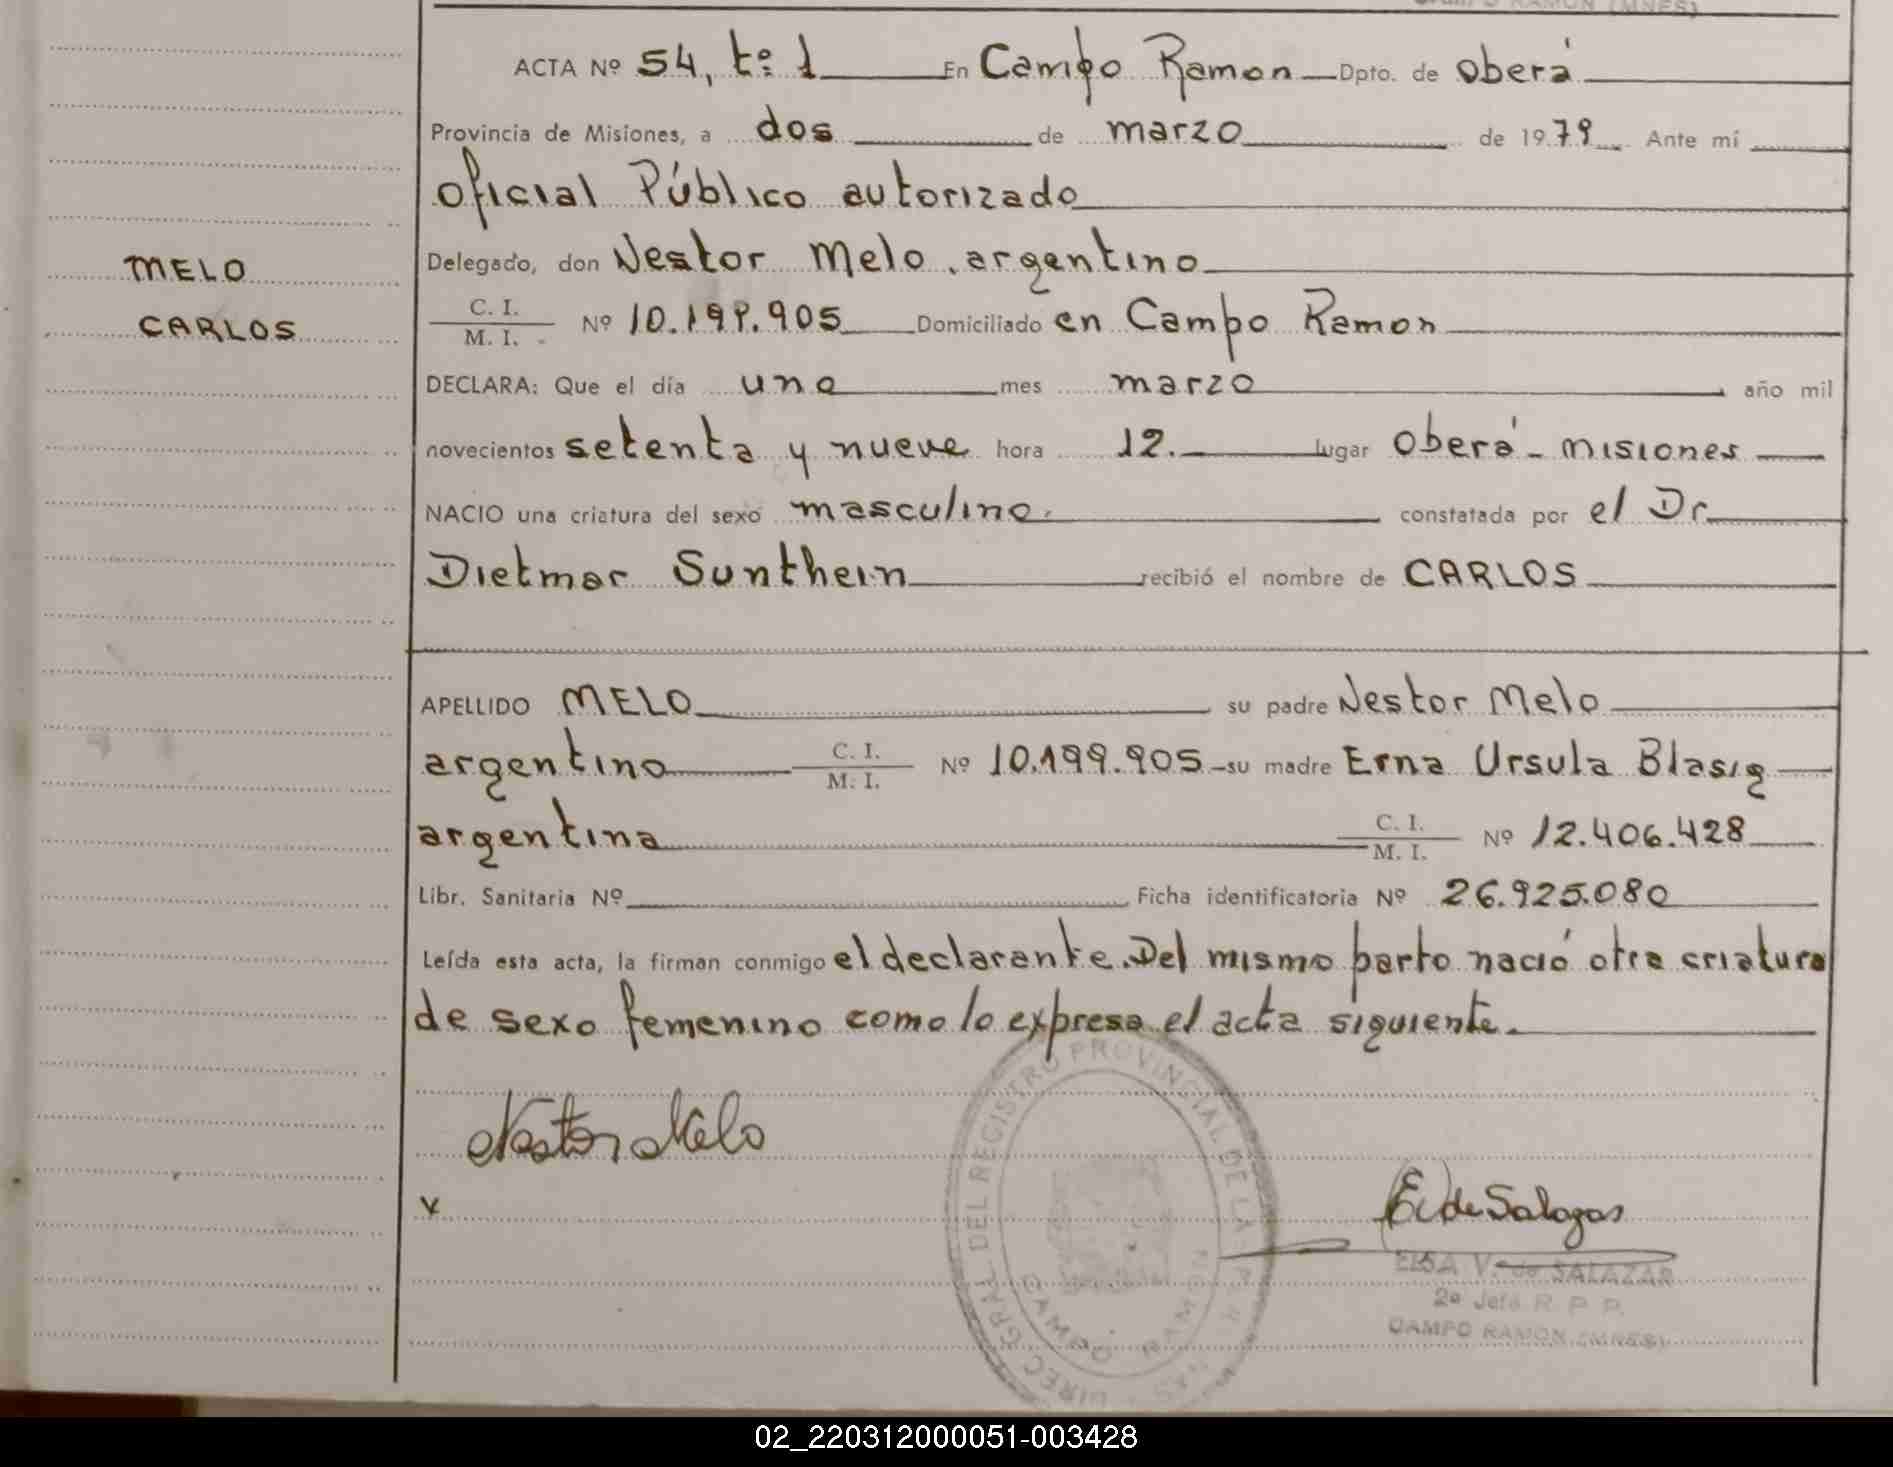 ACTA Nº 54, tº: 1 En Campo Ramon Dpto. de Oberá
Provincia de Misiones, a dos de marzo de 1979 Ante mí
Oficial Público autorizado
MELO
CARLOS
Delegado, don Nestor Melo, argentino
C. I.
M. I. Nº 10.199.905 Domiciliado en Campo Ramon
DECLARA: Que el día uno mes marzo, año mil
novecientos setenta y nueve hora 12. lugar Oberá - misiones
NACIO una criatura del sexo masculino. constatada por el Dr.
Dietmar Sunthein recibió el nombre de CARLOS
APELLIDO MELO su padre Nestor Melo
argentino C. I. Nº 10.199.905 su madre Erna Ursula Blasig
M. I.
argentina C. I. Nº 12.406.428
M. I.
Libr. Sanitaria Nº Ficha identificatoria Nº 26.925.080
Leída esta acta, la firman conmigo el declarante. Del mismo parto nació otra criatura
de sexo femenino como lo expresa el acta siguiente.
Nestor Melo
x
DIREC. GRAL. DEL REGISTRO PROVINCIAL DE LAS PERSONAS
CAMPO RAMON
E. de Salazar
ELSA V. de SALAZAR
2º Jefe R. P. P.
CAMPO RAMON (MNES)
02_220312000051-003428